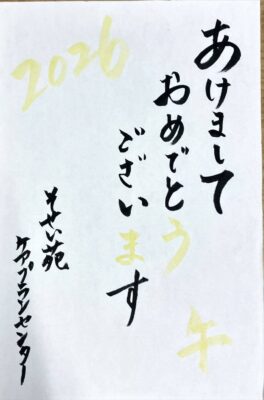 2026
あけまして
おめでとう
ございます
午
そせい苑
ケアプランセンター